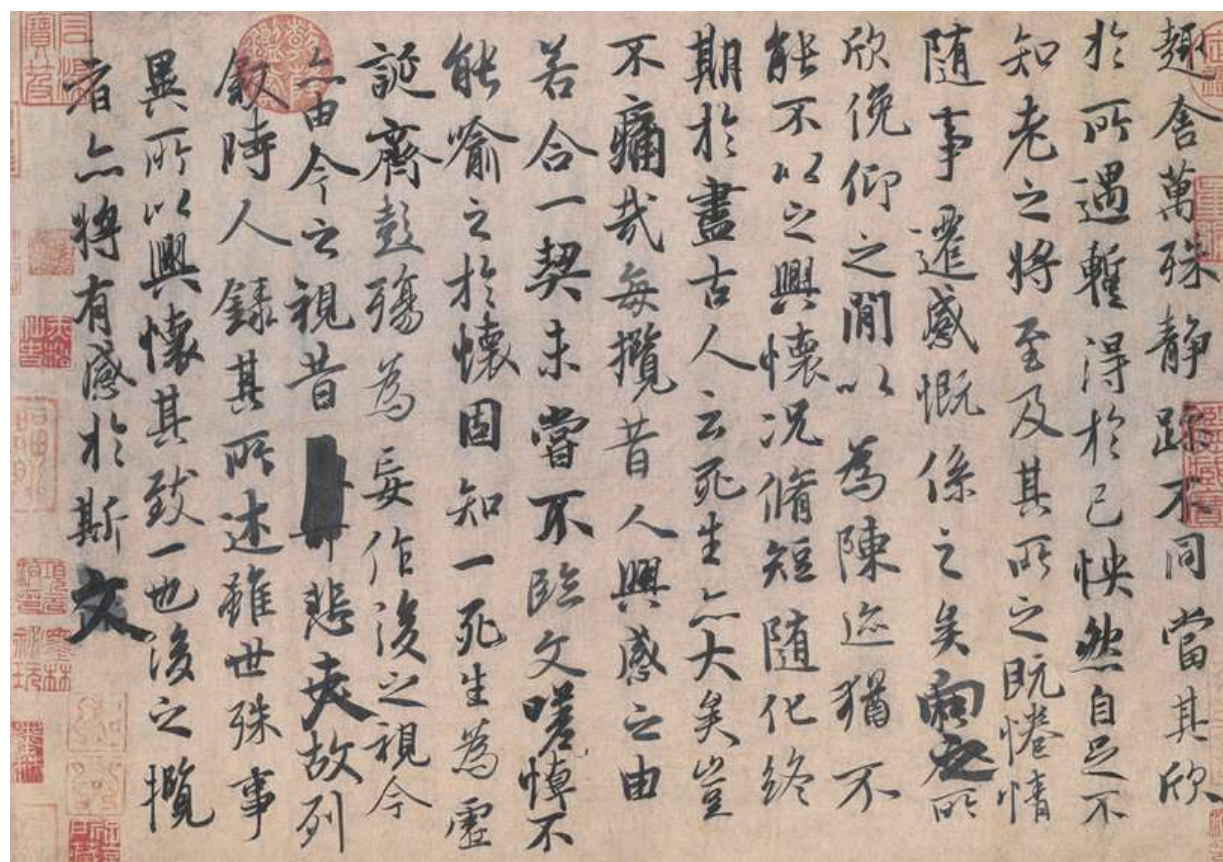 趣舍萬殊静躁不同當其欣
於所遇暫得於己怏然自足不
知老之將至及其所之既惓情
随事遷感慨係之矣向之所
欣俛仰之閒以為陳迹猶不
能不以之興懷況脩短随化終
期於盡古人云死生亦大矣豈
不痛哉每攬昔人興感之由
若合一契未嘗不臨文嗟悼不
能喻之於懷固知一死生為虛
誕齊彭殤為妄作後之視今
亦由今之視昔悲夫故列
敘時人錄其所述雖世殊事
異所以興懷其致一也後之攬
者亦將有感於斯文